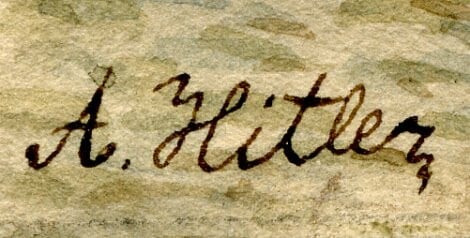 A. Hitler